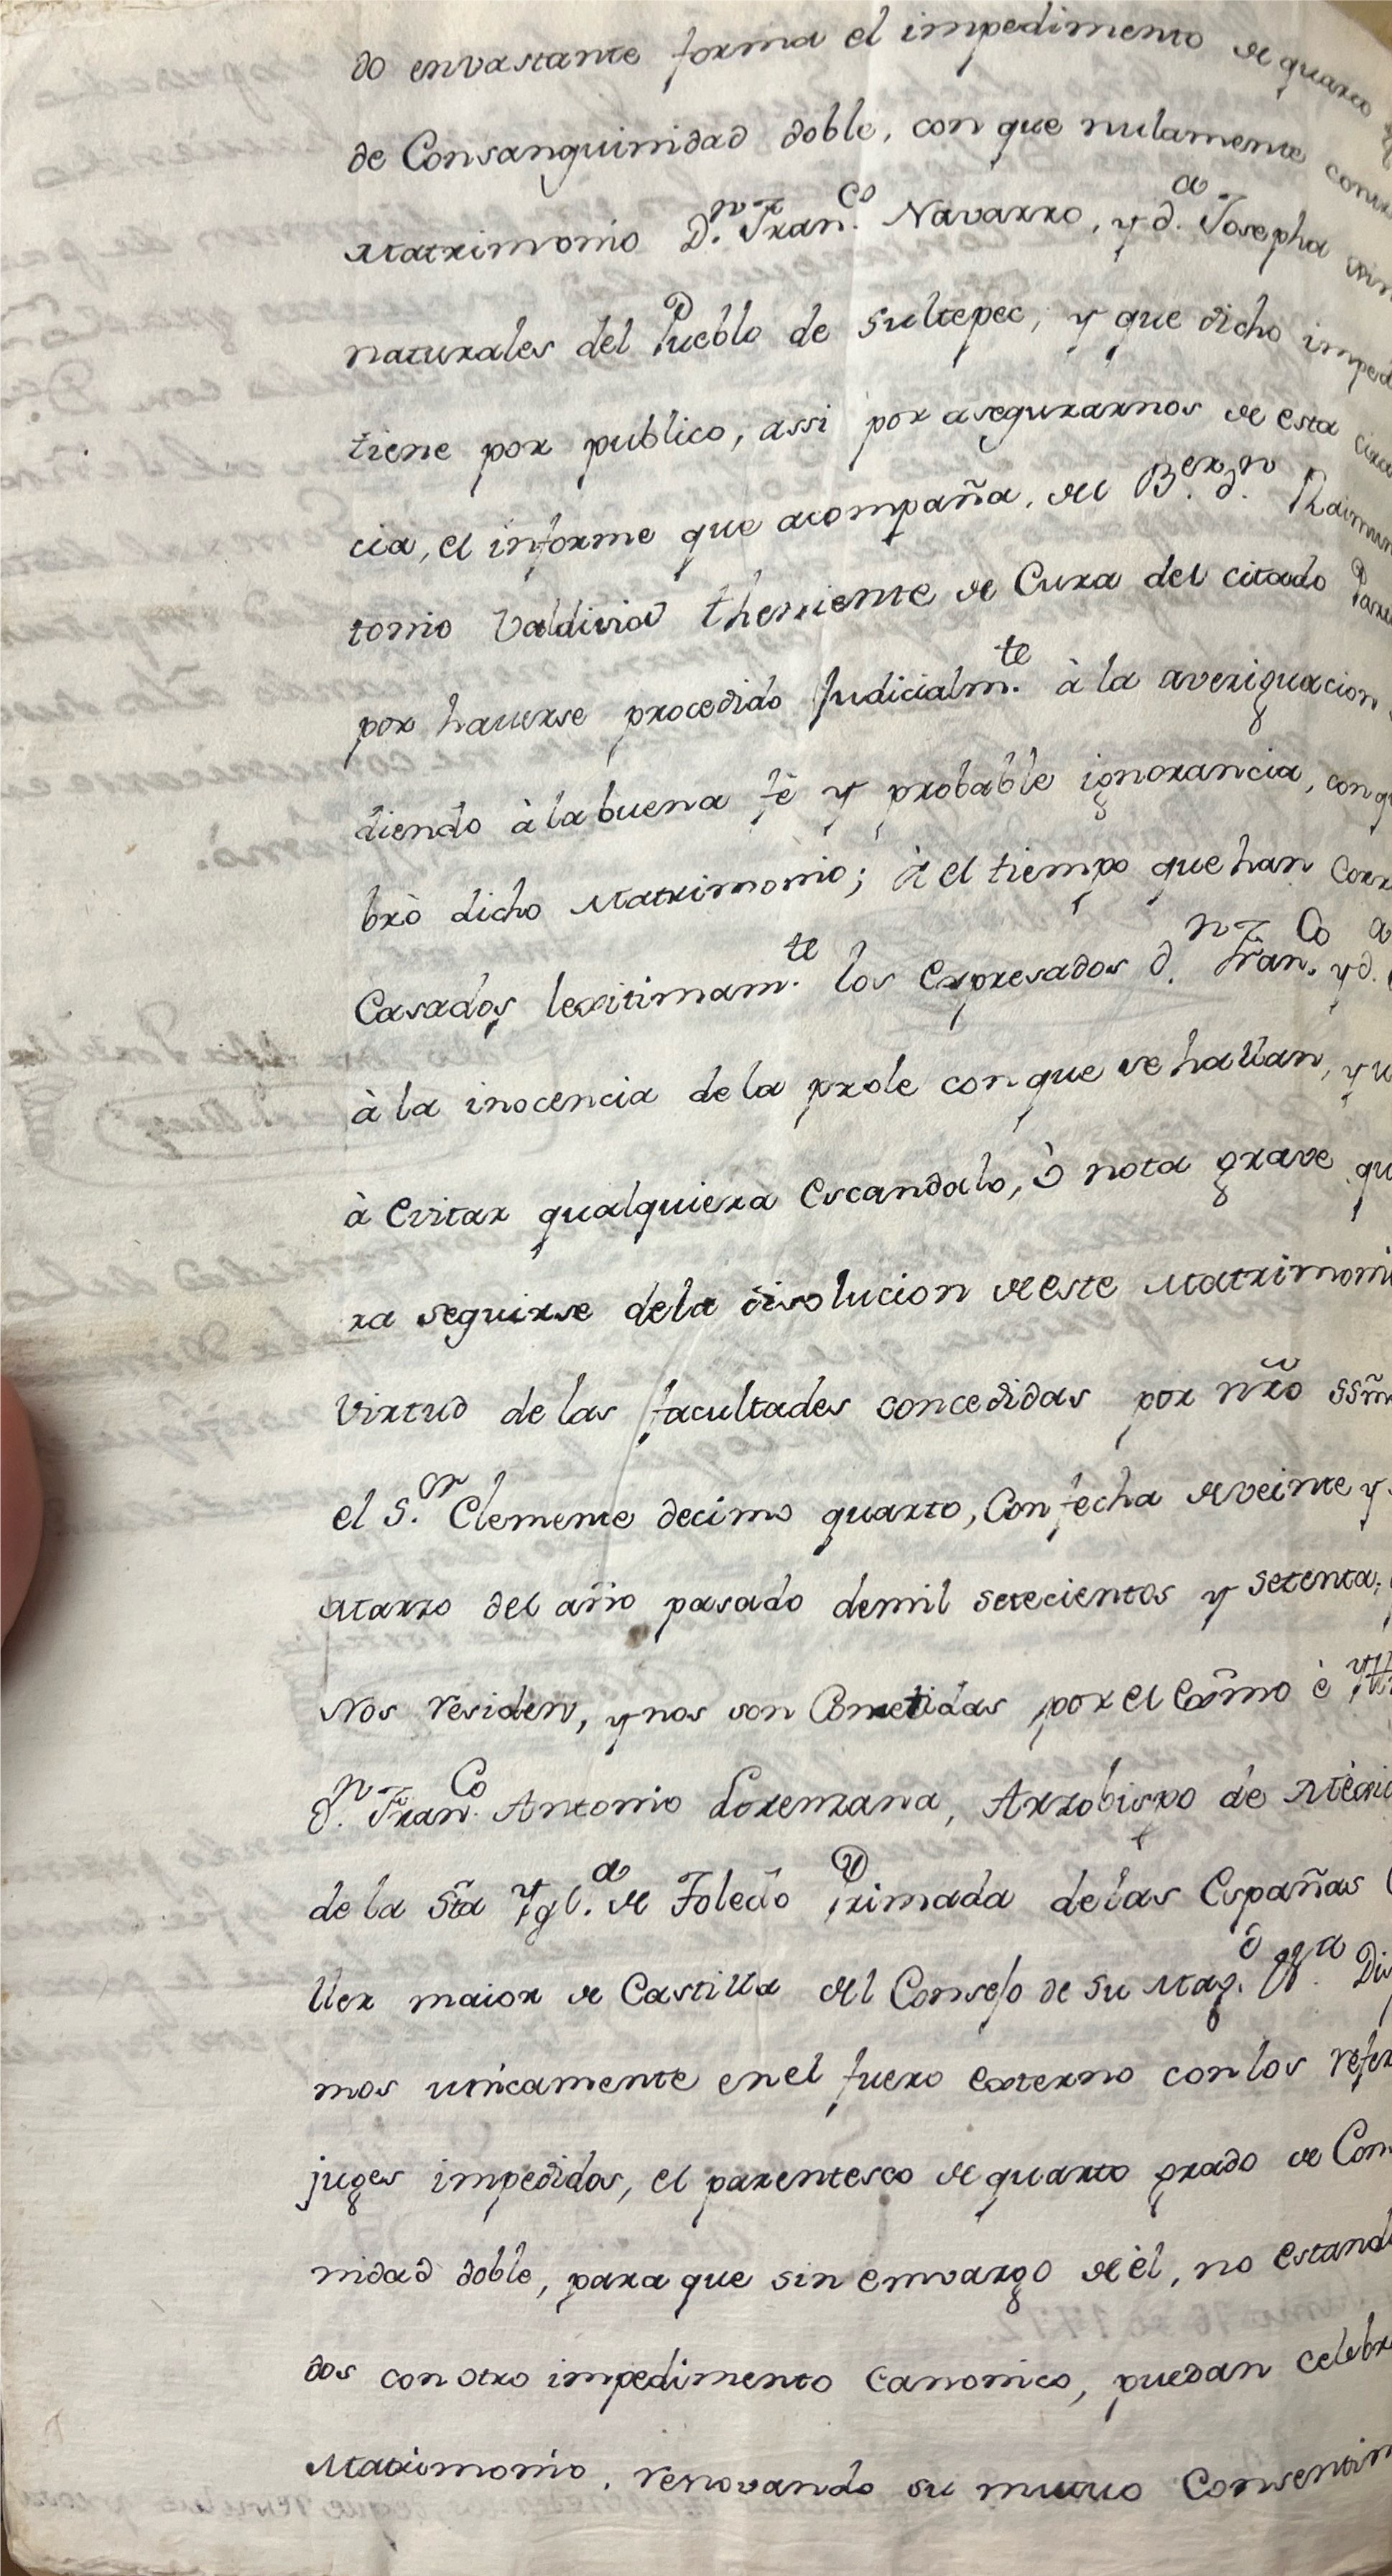 do envastante forma el impedimento de quarto
de Consanguinidad doble, con que nulamente contra
Matrimonio D.ⁿ Fran.ᶜᵒ Navarro, y d.ᵃ Josepha
naturales del Pueblo de Sultepec, y que dicho imped
tiene por publico, assi por asegurarnos de esta circ
cia, el informe que acompaña, del B.ᵉʳ d.ⁿ Raimun
tonio Valdivia theniente de Cura del citado Parti
por hauerse procedido Judicialm.ᵗᵉ à la averiguacion
diendo à la buena fè y probable ignorancia, con q
brò dicho Matrimonio; à el tiempo que han corr
Casados lexitimam.ᵗᵉ los Expresados d.ⁿ Fran.ᶜᵒ y d.ᵃ
à la inocencia de la prole con que se hallan, y u
à Evitar qualquiera Escandalo, ò nota grave qu
ra seguirse de la disolucion de este Matrimoni
Virtud de las facultades concedidas por nr̃o SSm̃
el S.ᵒʳ Clemente decimo quarto, Con fecha de veinte y
Marzo del año pasado de mil setecientos y setenta,
Nos residen, y nos son Cometidas por el Exm̃o è Yll
d.ⁿ Fran.ᶜᵒ Antonio Lorenzana, Arzobispo de Mèxi
de la Sta Ygl.ᵃ de Toledo Primada de las Españas
ller maior de Castilla del Consejo de su Mag.ᵈ Vª. Dis
mos unicamente en el fuero externo con los refer
juges impedidos, el parentesco de quarto grado de Con
nidad doble, para que sin emvargo de èl, no estand
dos con otro impedimento Canonico, puedan celebr
Matrimonio, renovando su mutuo Consentim